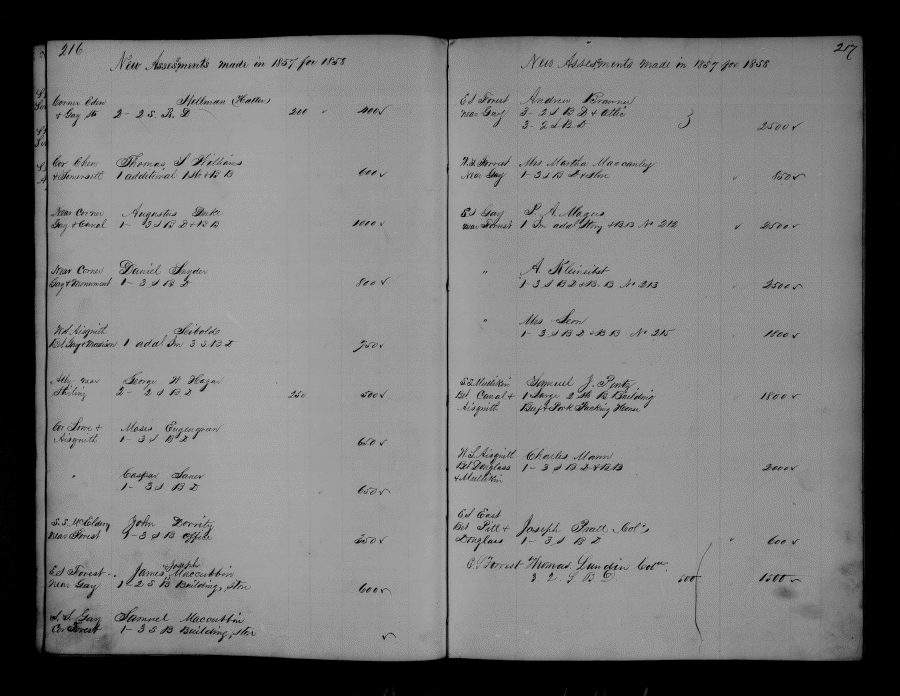 216
New Assessments made in 1857 for 1858
Corner Eden Hallman (Hatter
& Gay St 2 - 2 S. B. D 200 400
Cor Thomas S Williams
& Somersett 1 additional 1 St & B B 600
Near Corner Augustus Duke
Gay & Canal 1 - 3 S B D & B B 1000
Near Corner Daniel Snyder
Gay & Monument 1 - 3 S B D 800
W. S. Aisquith Seibolds
Bet Gay & Madison 1 addl Sm 3 S B D 750
Ally near George W Hagar
Stirling 2 - 2 S B D 250 500
Cor & Moses
Aisquith 1 - 3 S B D 650
" Caspar Saner
1 - 3 S B D 650
S. S. McElderry John Dorrity
Near Forest 1 - 3 S B Office 350
E S Forest Joseph
Near Gay James Maccubbin
1 - 2 S B Building, Store 600
S. S. Gay Samuel Maccubbin
Cor Forest 1 - 3 S B Building, Store
217
New Assessments made in 1857 for 1858
E S Forest Andrew Brawner
Near Gay 3 - 2 S B D & Attic
3 - 2 S B D 2500
W. S. Forrest Mrs Martha Maccauley
Near Gay 1 - 3 S B D & Store 850
E S Gay P. A. Magers
near Forrest 1 Sm addl Story & B B No 212 2500
" A. Kleineibst
1 3 S B D & B. B No 213 2500
" Mrs Leon
1 - 3 S B D & B B No 215 1800
S. S. Mullikin Samuel J. Penty
Bet Canal & 1 Large 2 St B Building 1800
Aisquith Beef & Pork Packing House
W. S. Aisquith Charles Mann
Bet Douglass 1 - 3 S B D & B B 2000
& Mullikin
E S East
Bet Pitt & Joseph Pratt Cold
Douglass 1 - 3 S B D 600
E. S Forrest Thomas Lundin Cold
3 2. S B D 500 1500